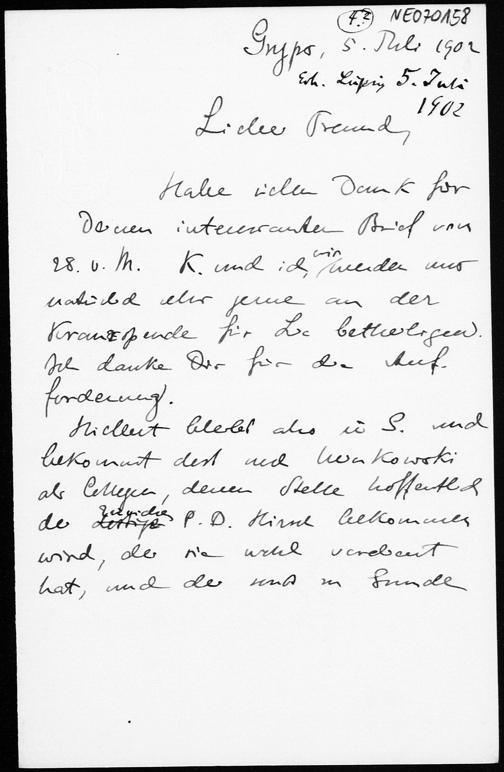 4.2 NEO70158
Gryps, 5. Juli 1902
Erh. Leipzig 5. Juli
1902
Lieber Freund,
Habe vielen Dank für
Deinen interessanten Brief vom
28. v. M. K. und ich, wir werden uns
natürlich sehr gerne an der
Kranzspende für betheiligen.
Ich danke Dir für die Auf-
forderung.
Hilbert bleibt also in G. und
bekommt dort noch Minkowski
als Collegen, dessen Stelle hoffentlich
der Züricher P. D. Hirsch bekommen
wird, der sie wohl verdient
hat, und der sonst zu Grunde